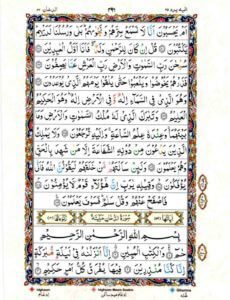 اَمْ يَحْسَبُوْنَ اَنَّا لَا نَسْمَعُ سِرَّهُمْ وَنَجْوٰىهُمْ بَلٰى وَرُسُلُنَا لَدَيْهِمْ
يَكْتُبُوْنَ قُلْ اِنْ كَانَ لِلرَّحْمٰنِ وَلَدٌ فَاَنَا اَوَّلُ الْعٰبِدِيْنَ
سُبْحٰنَ رَبِّ السَّمٰوٰتِ وَالْاَرْضِ رَبِّ الْعَرْشِ عَمَّا يَصِفُوْنَ
فَذَرْهُمْ يَخُوْضُوْا وَيَلْعَبُوْا حَتّٰى يُلٰقُوْا يَوْمَهُمُ الَّذِيْ يُوْعَدُوْنَ
وَهُوَ الَّذِيْ فِى السَّمَآءِ اِلٰهٌ وَّفِى الْاَرْضِ اِلٰهٌ وَهُوَ الْحَكِيْمُ
الْعَلِيْمُ وَتَبٰرَكَ الَّذِيْ لَهٗ مُلْكُ السَّمٰوٰتِ وَالْاَرْضِ وَمَا
بَيْنَهُمَا وَعِنْدَهٗ عِلْمُ السَّاعَةِ وَاِلَيْهِ تُرْجَعُوْنَ وَلَا يَمْلِكُ
الَّذِيْنَ يَدْعُوْنَ مِنْ دُوْنِهِ الشَّفَاعَةَ اِلَّا مَنْ شَهِدَ بِالْحَقِّ
وَهُمْ يَعْلَمُوْنَ وَلَئِنْ سَاَلْتَهُمْ مَّنْ خَلَقَهُمْ لَيَقُوْلُنَّ اللّٰهُ فَاَنّٰى
يُؤْفَكُوْنَ وَقِيْلِهٖ يٰرَبِّ اِنَّ هٰٓؤُلَآءِ قَوْمٌ لَّا يُؤْمِنُوْنَ
فَاصْفَحْ عَنْهُمْ وَقُلْ سَلٰمٌ فَسَوْفَ يَعْلَمُوْنَ
سُوْرَةُ الدُّخَانِ مَكِّيَّةٌ
بِسْمِ اللّٰهِ الرَّحْمٰنِ الرَّحِيْمِ
حٰمٓ وَالْكِتٰبِ الْمُبِيْنِ اِنَّآ اَنْزَلْنٰهُ فِيْ لَيْلَةٍ مُّبٰرَكَةٍ
اِنَّا كُنَّا مُنْذِرِيْنَ فِيْهَا يُفْرَقُ كُلُّ اَمْرٍ حَكِيْمٍ